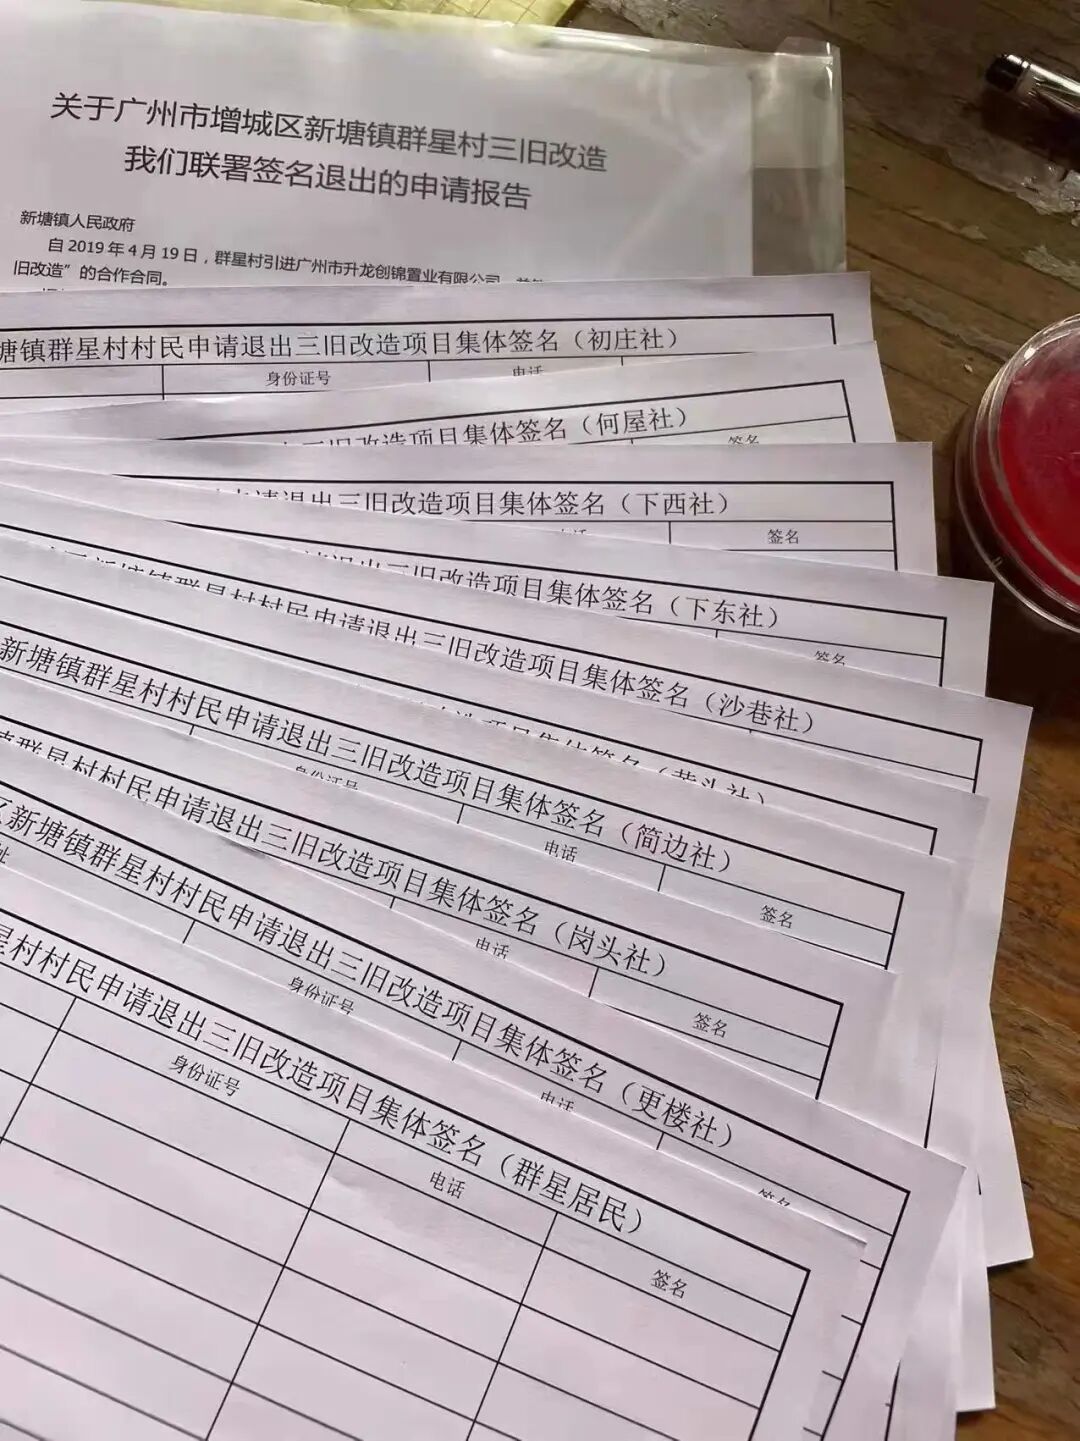 关于广州市增城区新塘镇群星村三旧改造
我们联署签名退出的申请报告
新塘镇人民政府
自2019年4月19日，群星村引进广州市升龙创锦置业有限公司
旧改造”的合作合同。
塘镇群星村村民申请退出三旧改造项目集体签名（初庄社）
身份证号 电话
三旧改造项目集体签名（何屋社）
签名
申请退出三旧改造项目集体签名（下西社）
电话 签名
请退出三旧改造项目集体签名（下东社）
签名
区新塘镇群星村村民申请退出三旧改造项目集体签名（沙巷社）
改造项目集体签名（黄头社）
新塘镇群星村村民申请退出三旧改造项目集体签名（简边社）
身份证号 电话 签名
镇群星村村民申请退出三旧改造项目集体签名（岗头社）
电话 签名
区新塘镇群星村村民申请退出三旧改造项目集体签名（更楼社）
址 身份证号 电话 签名
星村村民申请退出三旧改造项目集体签名（群星居民）
身份证号 电话 签名